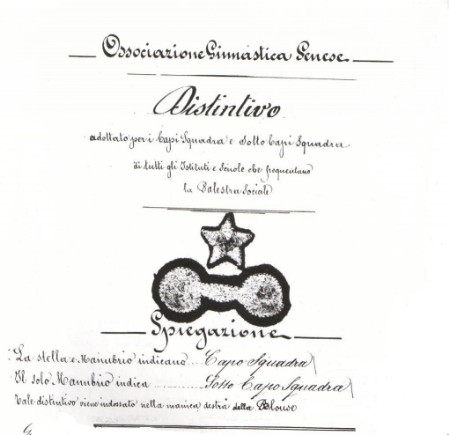 Associazione Ginnastica Senese
Distintivo
adottato per i Capi Squadra e Sotto Capi Squadra
di tutti gli Istituti e Scuole che frequentano
la Palestra Sociale
Spiegazione
La stella e Manubrio indicano .... Capo Squadra
Il solo Manubrio indica ............ Sotto Capo Squadra
Tale distintivo viene indossato nella manica destra della Blouse